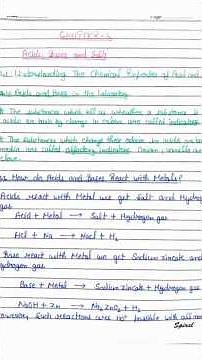 CHAPTER-2
Acids, Bases and Salts
Understanding The Chemical Properties of Acid and
Acids and Bases in the Laboratory
The substances which tell us whether a substance is
acidic or by change in colour are called indicators
The substances which change their odour in acidic or
are called olfactory indicators
clove.
How do Acids and Bases React with Metals?
Acids react with Metal we get Salt and Hydrog
gas
Acid + Metal → Salt + Hydrogen gas
HCl + Na → NaCl + H₂
Base react with Metal we get Sodium zincate and
ydrogen gas
Base + Metal → Sodium Zincate + Hydrogen gas
NaOH + Zn → Na₂ZnO₂ + H₂
However, such reactions are not possible with all
Spiral